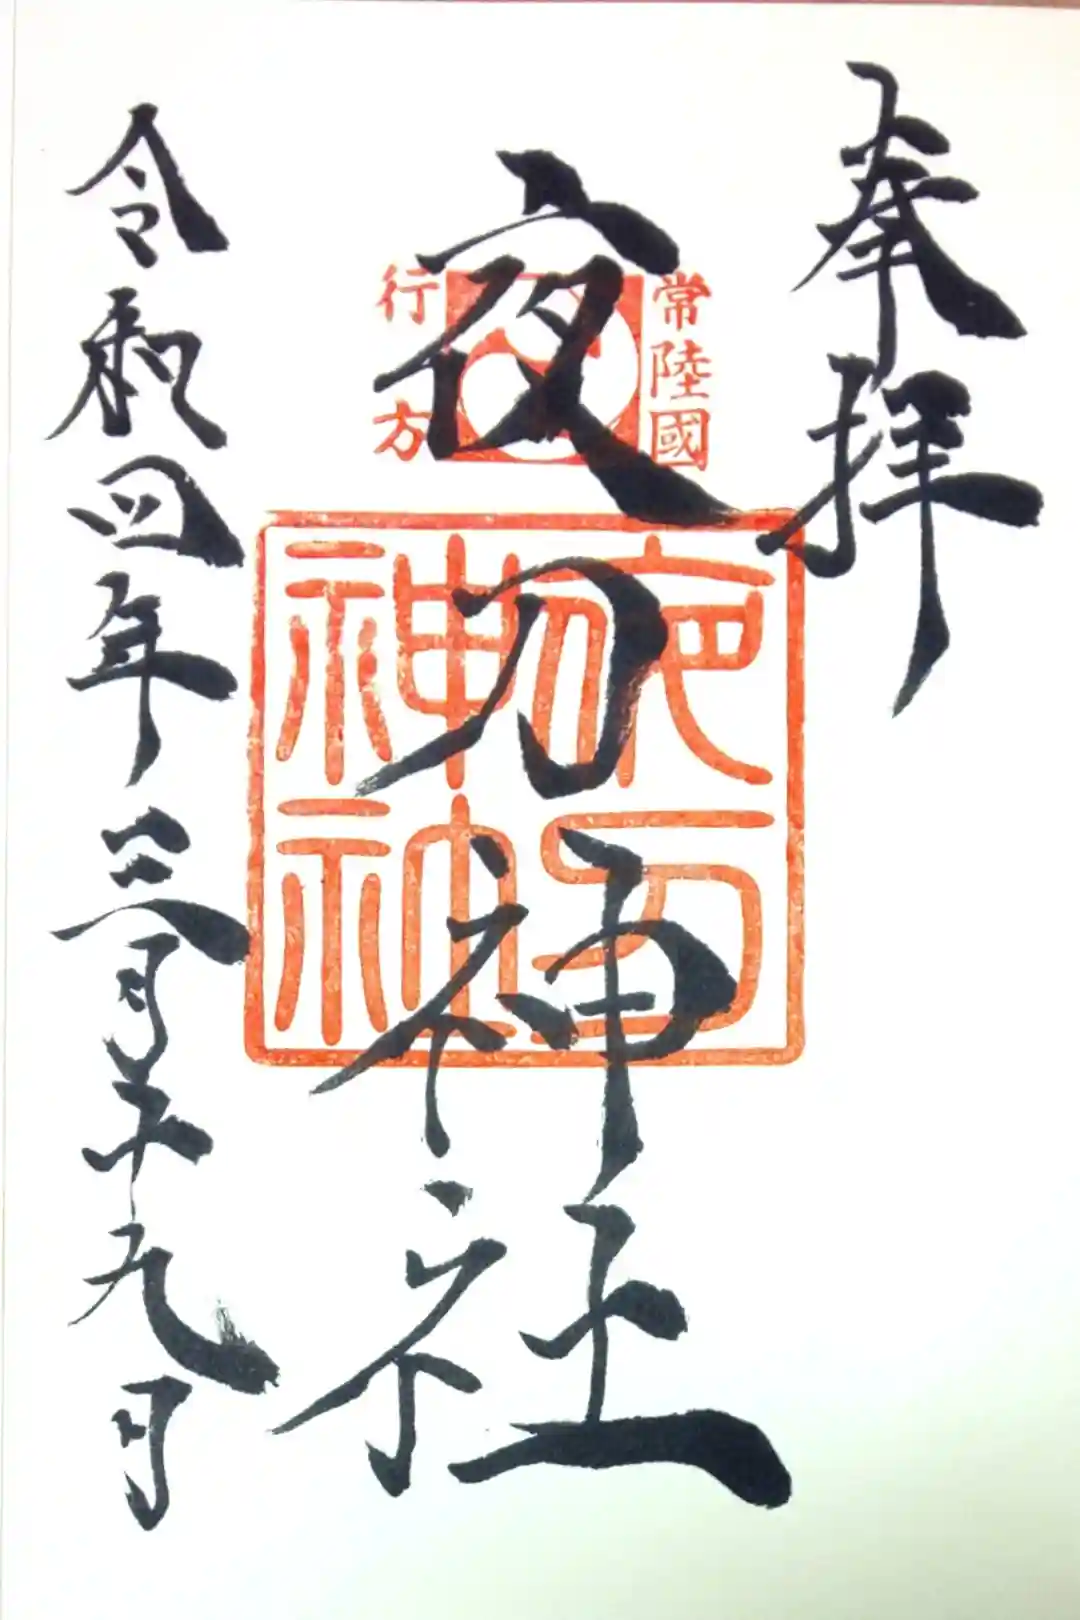 奉拝
常陸國
行方
夜刀神社
夜刀神社
令和四年三月十九日